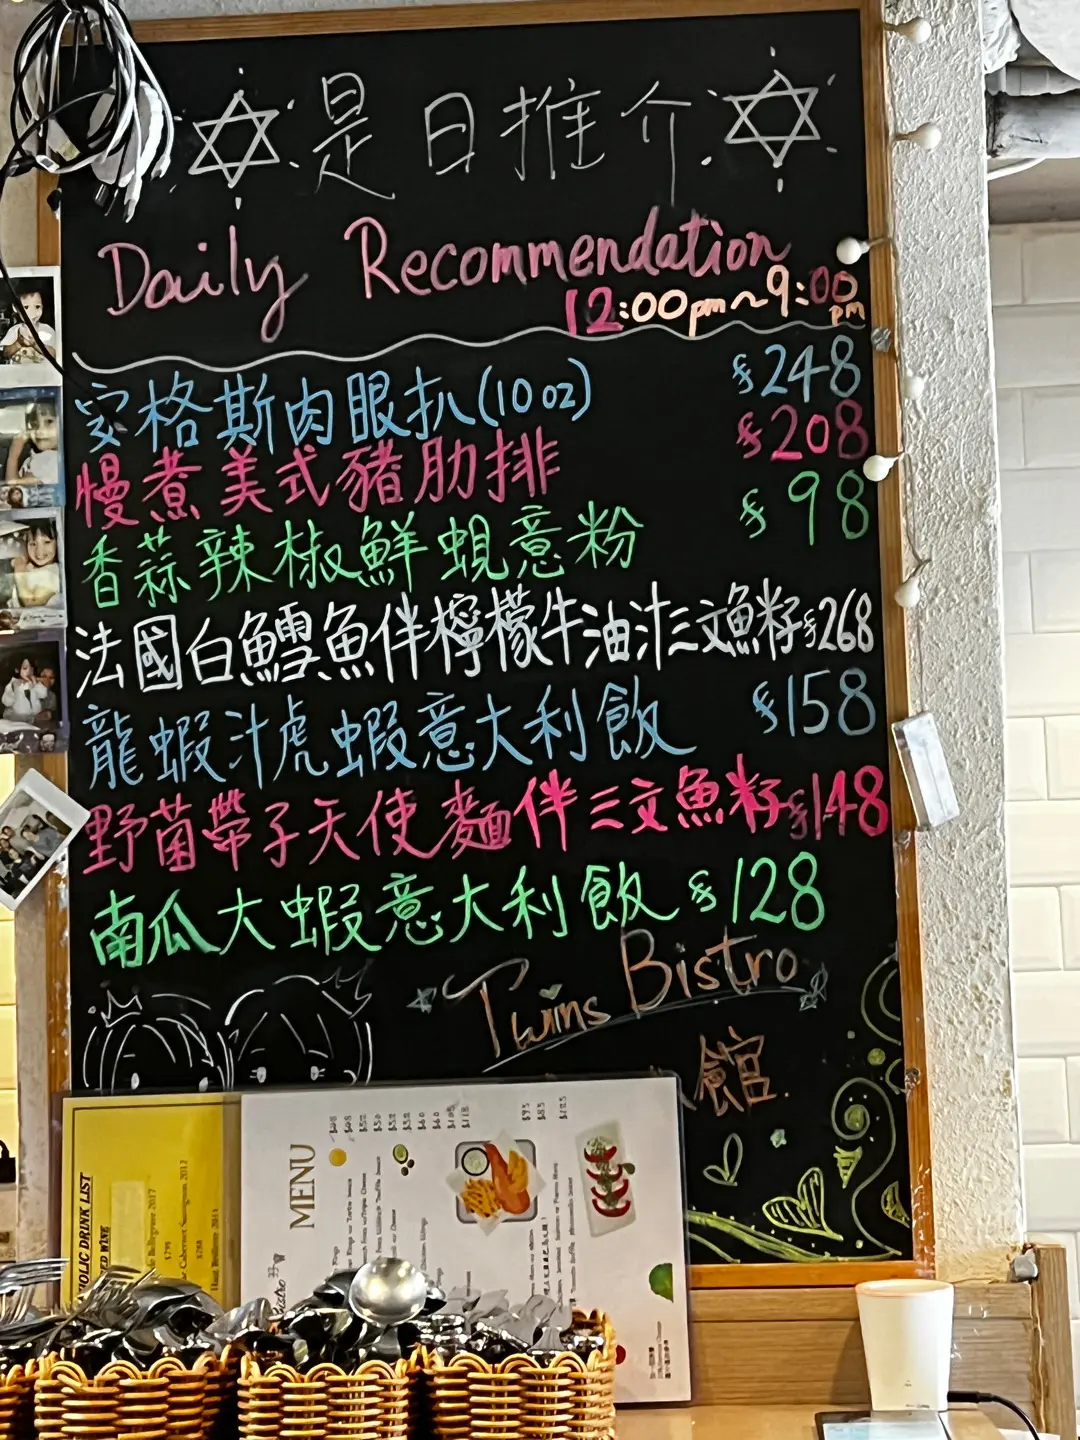 是日推介
Daily Recommendation
12:00pm~9:00pm
安格斯肉眼扒(10oz) $248
慢煮美式豬肋排 $208
香蒜辣椒鮮蜆意粉 $98
法國白鱈魚伴檸檬牛油汁三文魚籽 $268
龍蝦汁虎蝦意大利飯 $158
野菌帶子天使麵伴三文魚籽 $148
南瓜大蝦意大利飯 $128
Twins Bistro
館
HOLIC DRINK LIST
RED WINE
MENU